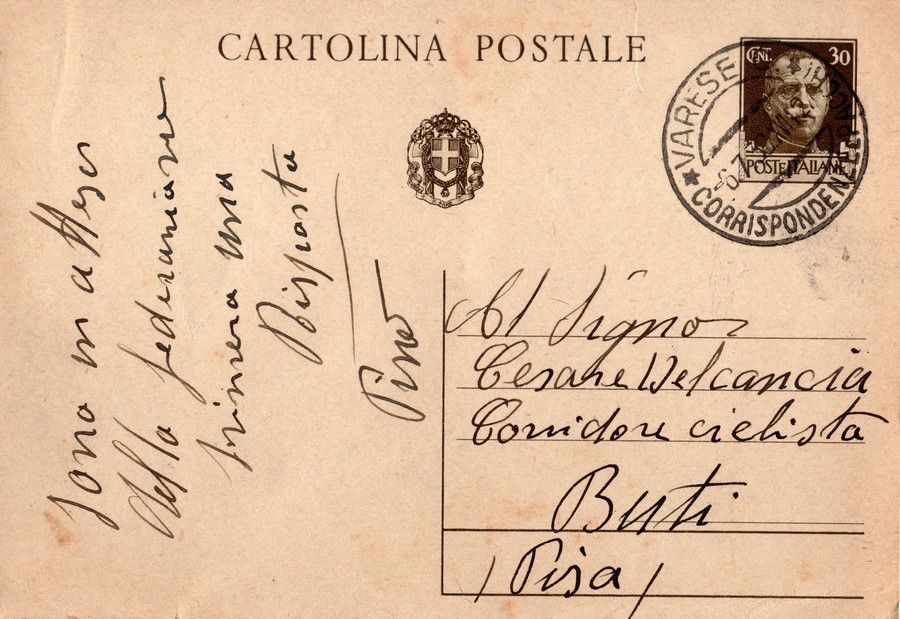 CARTOLINA POSTALE
CENT. 30
POSTE ITALIANE
VARESE
CORRISPONDENZE
Sono in attesa
della federazione
prima una
Risposta
Pino
Al Signor
Cesare Delcancia
Corridore ciclista
Buti
(Pisa)